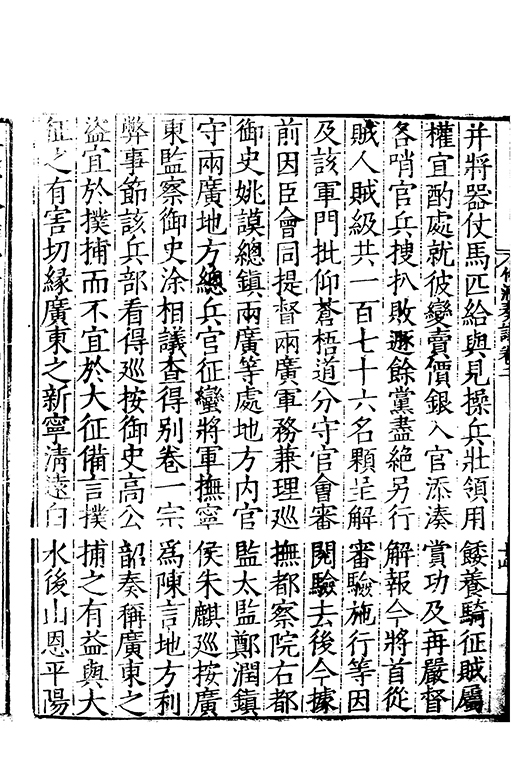 并將器仗馬匹給與見操兵壯領用餧養騎征賊屬
權宜酌處就彼變賣價銀入官添湊賞功及再嚴督
各哨官兵搜扒敗遯餘黨盡絕另行解報今將首從
賊人賊級共一百七十六名顆呈解審驗施行等因
及該軍門批仰蒼梧道分守官會審閱驗去後今據
前因臣會同提督兩廣軍務兼理巡撫都察院右都
御史姚謨總鎮兩廣等處地方內官監太監鄭潤鎮
守兩廣地方總兵官征蠻將軍撫寧侯朱麒巡按廣
東監察御史涂相議查得別卷一宗爲陳言地方利
弊事節該兵部看得巡按御史高公韶奏稱廣東之
盜宜於撲捕而不宜於大征備言撲捕之有益與大
征之有害切緣廣東之新寧清遠白水後山恩平陽